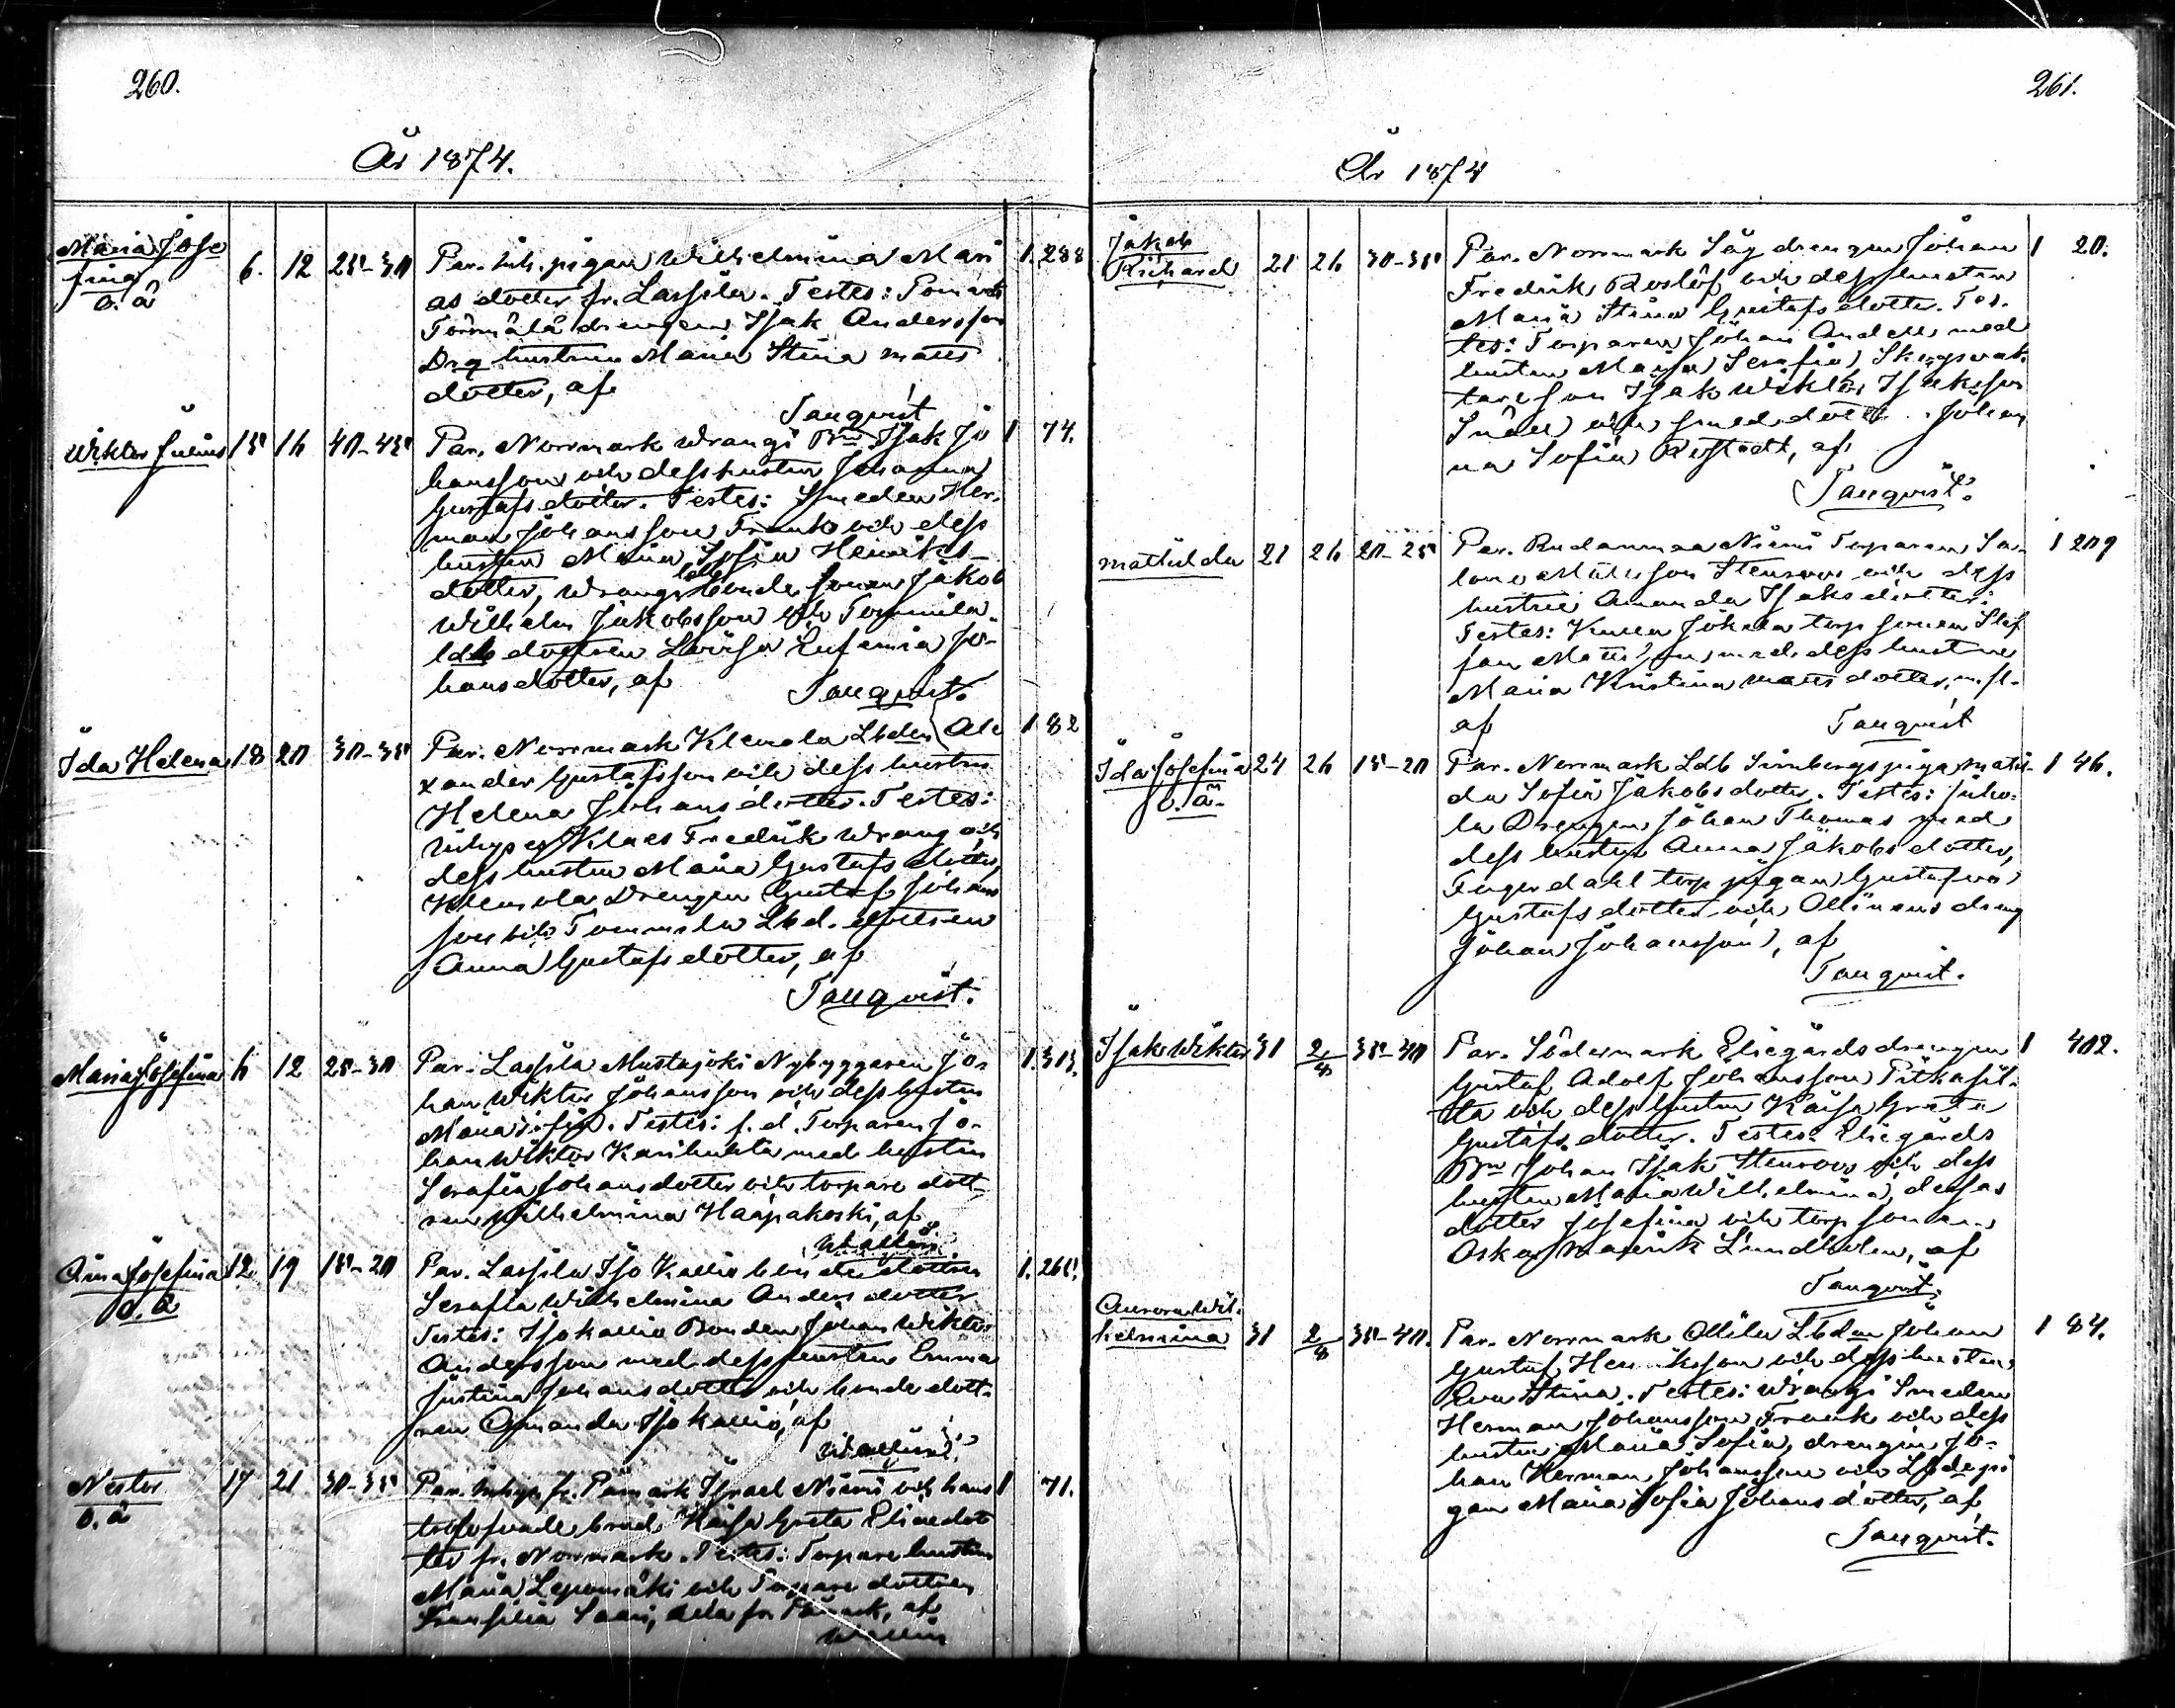 260.
År 1874.
Maria Jose
fina
o. ä
6. 12 25-30
Par. Inh. pigan Wilhelmina Mari
as dotter fr. Lassila. Testes: Pomark
Törmälä drengen Isak Andersson
Drg hustrun Maria Stina Matts
dotter, af
Tanqvist
1. 288
Wiktor Julius 15 16 40-45
Par. Norrmark Wrangi Bn. Isak Jo
hansson och dess hustru Johanna
Gustafsdotter. Testes: Smeden Her-
man Johansson Frank och dess
hustru Maria Sofia Henriks-
dotter, Wrangi bonde sonen Jakob
Wilhelm Jakobsson och Tommila
ldb dottren Lovisa Eufemia Jo-
hansdotter, af
Tanqvist.
1 74.
Ida Helena 18 20 30-35
Par. Norrmark Klemola Lbden Ale
xander Gustafsson och dess hustru
Helena Johansdotter. Testes:
Inhyses Klaes Fredrik Wrang och
dess hustru Maria Gustafsdotter,
Klemola Drengen Gustaf Johans
son och Tommila Lbd. dottren
Anna Gustafsdotter, af
Tanqvist.
1 82
Maria Josefina 6 12 25-30
Par. Lassila Mustajoki Nybyggaren Jo-
han Wiktor Johansson och dess hustru
Maria Sofia. Testes: f. d. Torparen Jo-
han Wiktor Karihukta med hustru
Serafia Johansdotter och torpare dott-
ren Wilhelmina Haapakoski, af
Wallin
1. 313.
Aina Josefina 12 19 15-20
o. ä
Par. Lassila Iso Kallio bonde dottren
Serafia Wilhelmina Andersdotter
Testes: Isokallio Bonden Johan Wiktor
Andersson med dess hustru Emma
Justina Johansdotter och bonde dott-
ren Amanda Isokallio, af
Wallin
1. 265.
Nestor 17 21 30-35
o. ä
Par. Inhys. fr. Påmark Israel Niemi och hans
trolofvade brud Kaisa Greta Eliedot
ter fr. Norrmark. Testes: Torpare hustru
Maria Lepomäki och Torpare dottren
Saari, alla fr. Påmark, af
Wallin
1 71.
261.
År 1874
Jakob
Richard 21 26 30-35
Par. Norrmark Såg drengen Johan
Fredrik Roslöf och dess hustru
Maria Stina Gustafsdotter. Tes-
tes: Torparen Johan Andell med
hustru Maria Serafia, Skogsvak-
tare son Isak Wiktor Isaksson
Snäll och smed dotter Johan
na Sofia Refstedt, af
Tanqvist.
1 20.
Mattilda 21 26 20-25
Par. Rudanmaa Niemi Torparen Sa-
lomo Mattsson Stenroos och dess
hustru Amanda Isaksdotter.
Testes: Kulla Jokela torp sonen Stef
fan Mattsson, med dess hustru
Maria Kristina Mattsdotter, m. fl.
af Tanqvist
1 209
Ida Josefina 24 26 15-20
o. ä.
Par. Norrmark Ldb Sirnbergs piga Matil-
da Sofia Jakobsdotter. Testes: Juho-
la Drengen Johan Thomas med
dess hustru Anna Jakobsdotter,
Fingerdahl torp pigan Gustafva
Gustafsdotter och Ollinens dreng
Johan Johansson, af
Tanqvist.
1 46.
Isak Wiktor 31 2/8 35-40
Par. Södermark Eliegårds drengen
Gustaf Adolf Johansson Pitkäsil-
ta och dess hustru Kaisa Greta
Gustafsdotter. Testes: Eliegårds
Bn Johan Isak Stenroos och dess
hustru Maria Wilhelmina, dessas
dotter Josefina och torp sonen
Oskar Maurits Lundbolm, af
Tanqvist.
1 402.
Aurora Wil-
helmina 31 2/8 35-40.
Par. Norrmark Ollila Lbden Johan
Gustaf Henriksson och dess hustru
Eva Stina. Testes: Wrangi Smeden
Herman Johansson Frank och dess
hustru Maria Sofia, drengen Jo-
han Herman Johansson och Lbdpi
gan Maria Sofia Johansdotter, af
Tanqvist.
1 84.